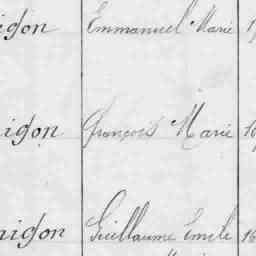 igon Emmanuel Marie
igon François Marie
igon Guillaume Emile